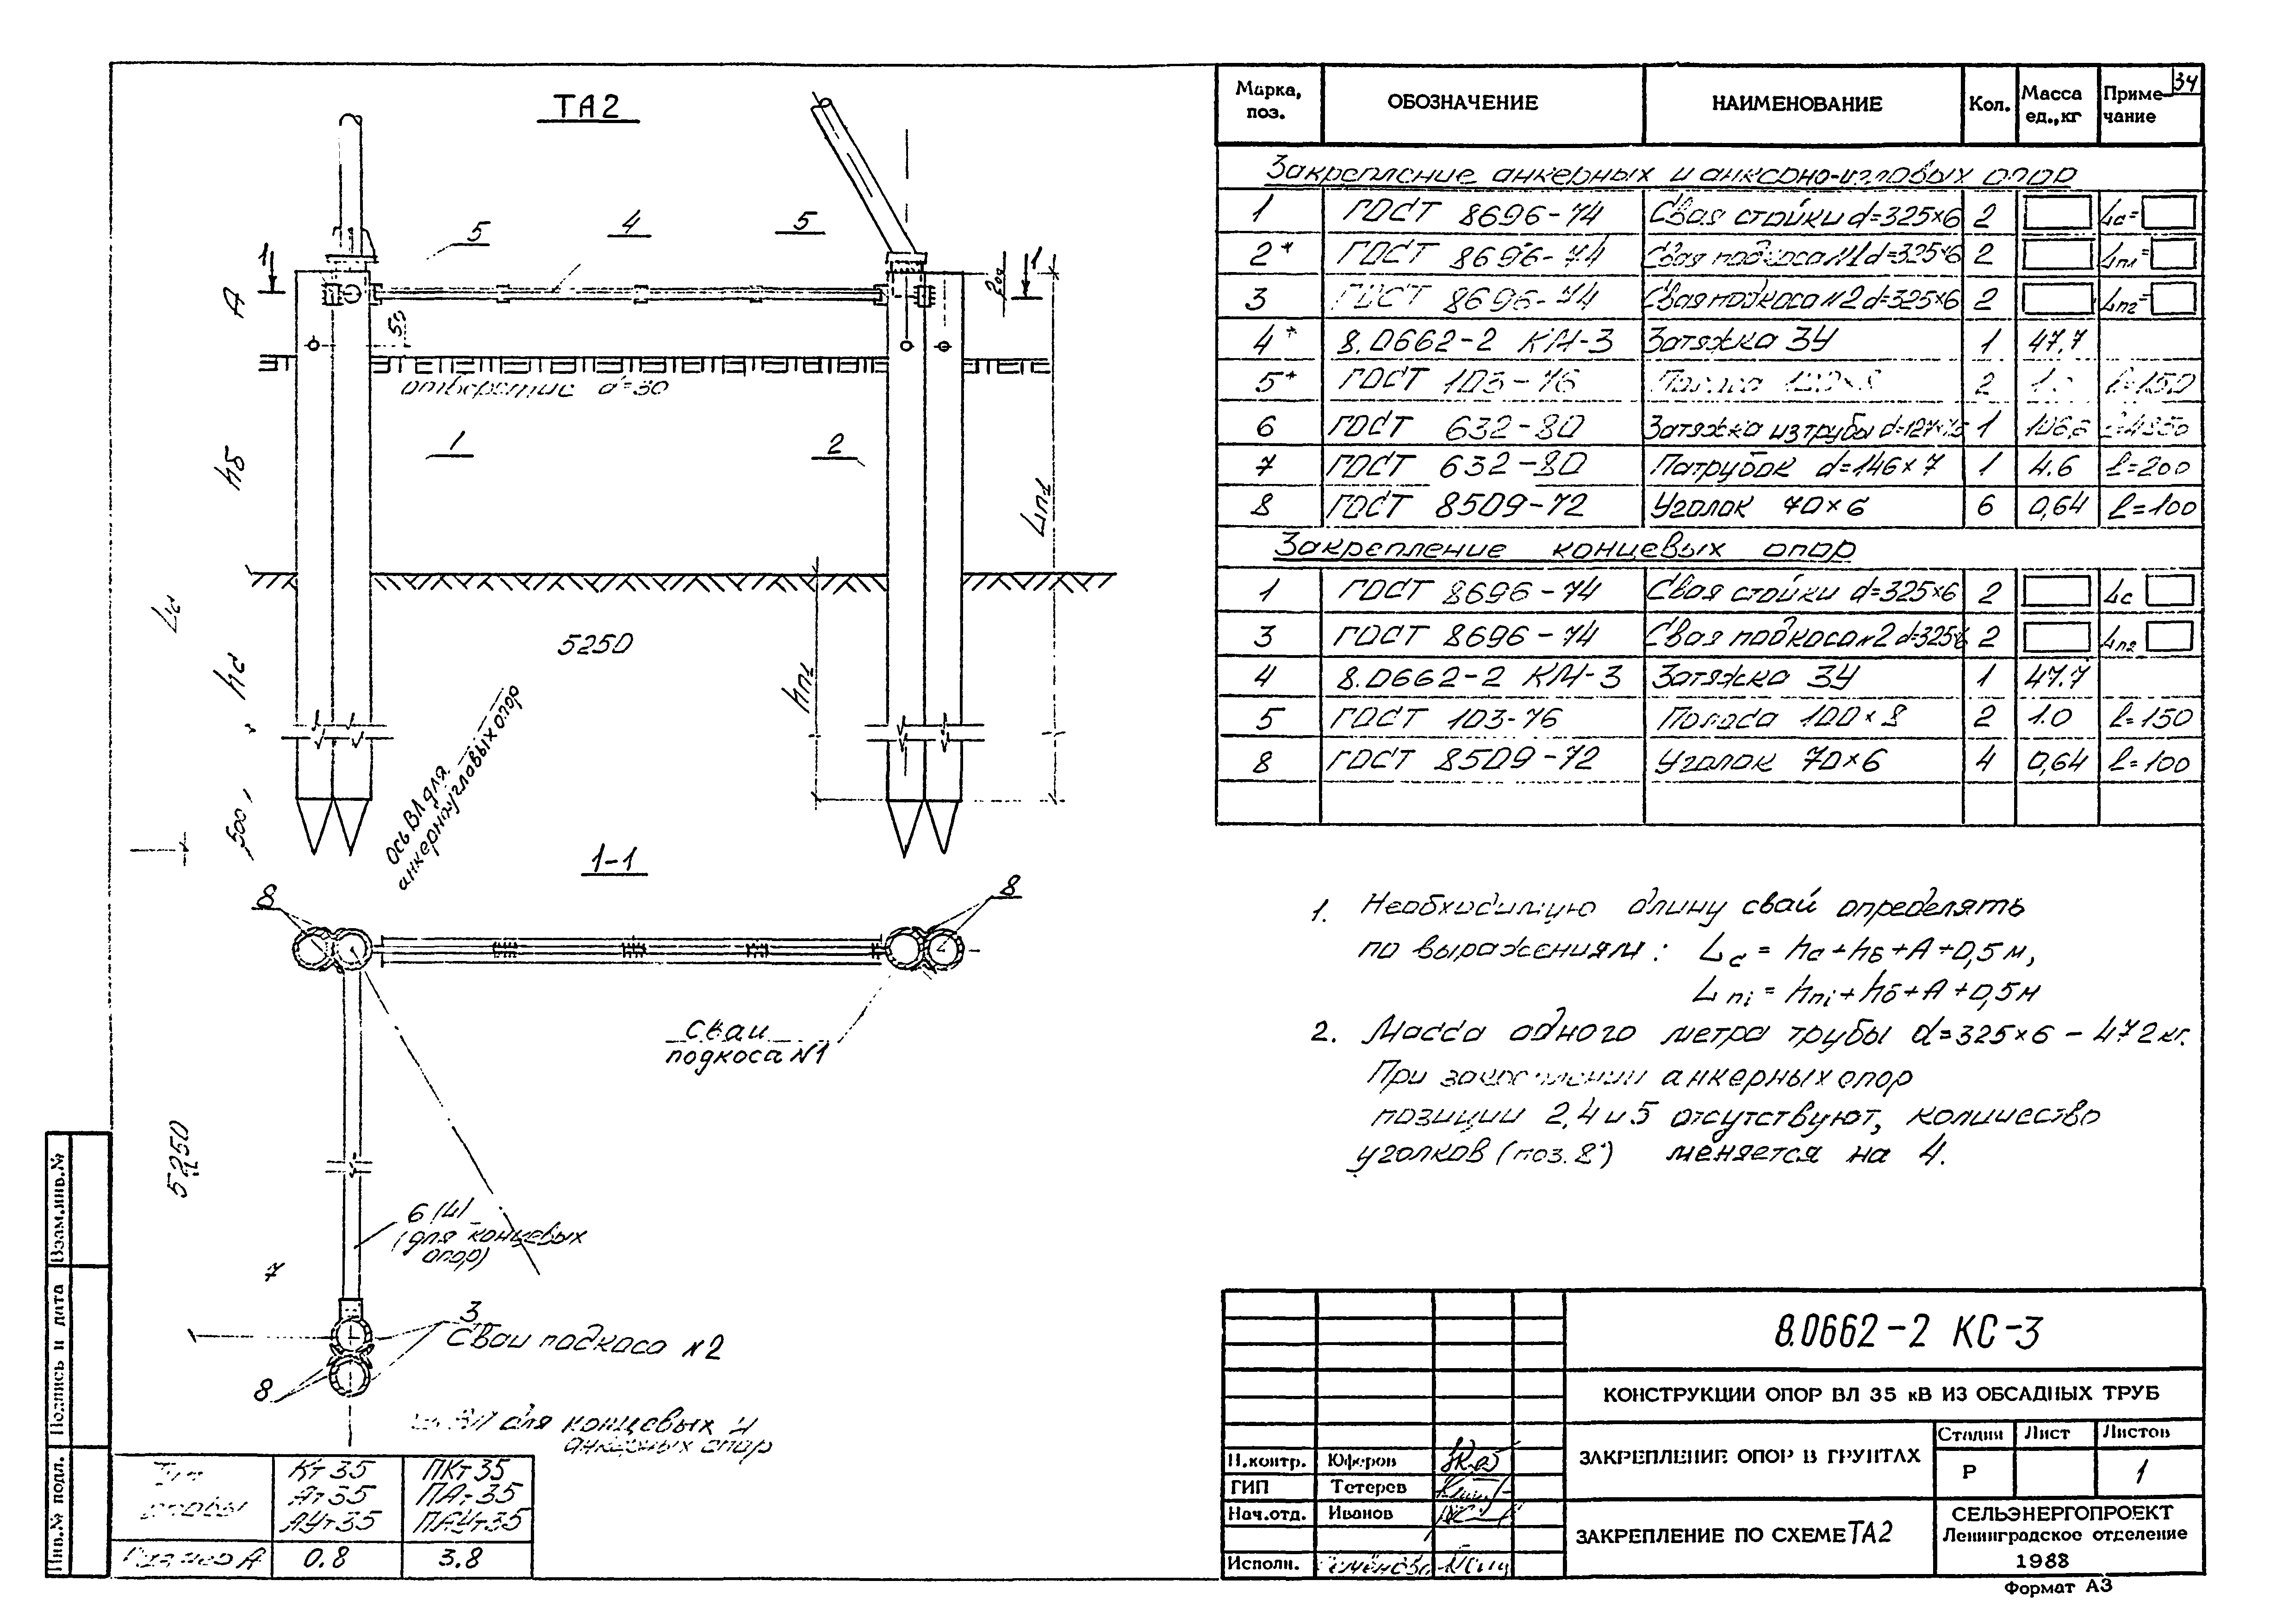 ТА2
5
4
5
1
1
А
200
50
отверстие d=30
1
2
hб
Lп1
Lс
5250
hс
hп1
500
ось ВЛ для
анкерноугловых опор
1-1
8
8
Сваи
подкоса №1
5250
6 (4)
(для концевых
опор)
7
3
Сваи подкоса №2
8
ВЛ для концевых и
анкерных опор
Кт35 ПКт35
Ат35 ПАт35
АУт35 ПАУт35
А 0.8 3.8
34
Марка, поз. ОБОЗНАЧЕНИЕ НАИМЕНОВАНИЕ Кол. Масса ед.,кг Приме-чание
Закрепление анкерных и анкерно-угловых опор
1 ГОСТ 8696-74 Свая стойки d=325×6 2 Lс=
2* ГОСТ 8696-74 Свая подкоса №1 d=325×6 2 Lп1=
3 ГОСТ 8696-74 Свая подкоса №2 d=325×6 2 Lп2=
4* 8.0662-2 КМ-3 Затяжка ЗУ 1 47.7
5* ГОСТ 103-76 Полоса 100×8 2 ℓ=150
6 ГОСТ 632-80 Затяжка из трубы 1
7 ГОСТ 632-80 Патрубок d=146×7 1 4.6 ℓ=200
8 ГОСТ 8509-72 Уголок 70×6 6 0,64 ℓ=100
Закрепление концевых опор
1 ГОСТ 8696-74 Свая стойки d=325×6 2 Lс
3 ГОСТ 8696-74 Свая подкоса №2 d=325×6 2 Lп2
4 8.0662-2 КМ-3 Затяжка ЗУ 1 47.7
5 ГОСТ 103-76 Полоса 100×8 2 1.0 ℓ=150
8 ГОСТ 8509-72 Уголок 70×6 4 0,64 ℓ=100
1. Необходимую длину свай определять
по выражениям: Lс = hс+hб+А+0,5м,
Lпi = hпi+hб+А+0,5м
2. Масса одного метра трубы d=325×6 – 47.2 кг.
При закреплении анкерных опор
позиции 2,4 и 5 отсутствуют, количество
уголков (поз. 8) меняется на 4.
8.0662-2 КС-3
КОНСТРУКЦИИ ОПОР ВЛ 35 кВ ИЗ ОБСАДНЫХ ТРУБ
ЗАКРЕПЛЕНИЕ ОПОР В ГРУНТАХ
Стадия Лист Листов
Р 1
ЗАКРЕПЛЕНИЕ ПО СХЕМЕ ТА2
СЕЛЬЭНЕРГОПРОЕКТ
Ленинградское отделение
1988
Н.контр. Юферов
ГИП Тетерев
Нач.отд. Иванов
Исполн. Семёнова
Формат А3
Взам.инв.№
Подпись и дата
Инв.№ подл.